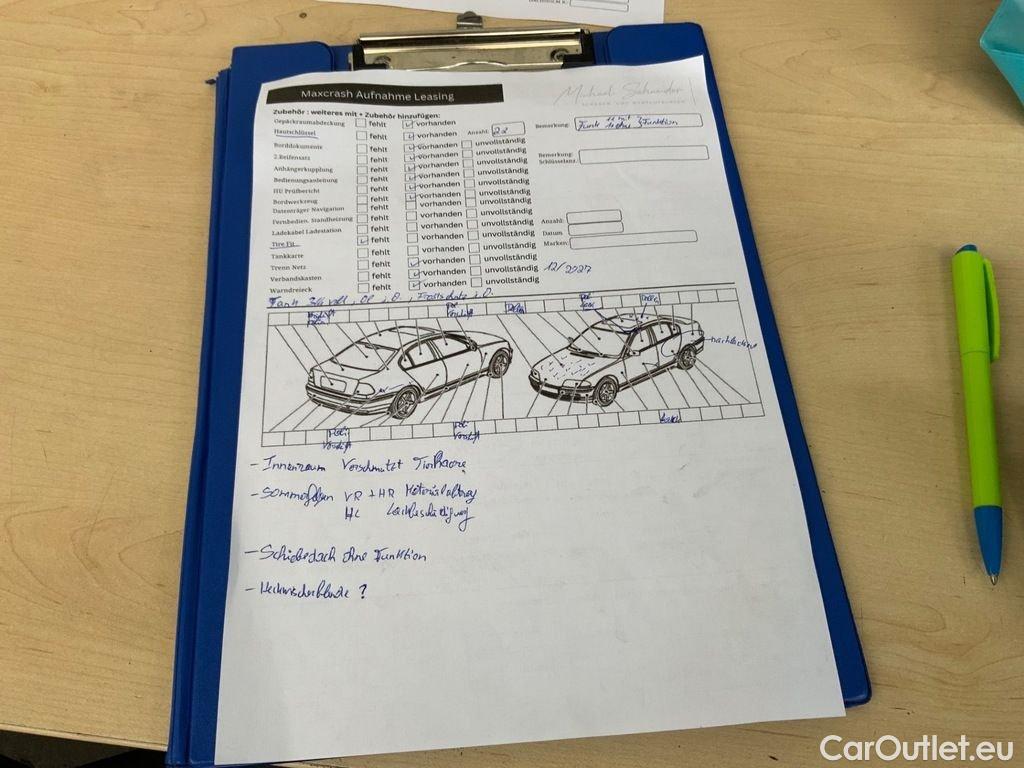 Maxcrash Aufnahme Leasing
Michael Schneider
Zubehör : weiteres mit + Zubehör hinzufügen:
Gepäckraumabdeckung fehlt vorhanden
Hautschlüssel fehlt vorhanden Anzahl: 22 Bemerkung: Funk Funktion
Borddokumente fehlt vorhanden unvollständig
2.Reifensatz fehlt vorhanden unvollständig Bemerkung:
Anhängerkupplung fehlt vorhanden unvollständig Schlüsselanz.
Bedienungsanleitung fehlt vorhanden unvollständig
HU Prüfbericht fehlt vorhanden unvollständig
Bordwerkzeug fehlt vorhanden unvollständig
Datenträger Navigation fehlt vorhanden unvollständig
Fernbedien. Standheizung fehlt vorhanden unvollständig Anzahl:
Ladekabel Ladestation fehlt vorhanden unvollständig Datum
Tire Fit fehlt vorhanden unvollständig Marken:
Tankkarte fehlt vorhanden unvollständig
Trenn Netz fehlt vorhanden unvollständig
Verbandskasten fehlt vorhanden unvollständig 12/2027
Warndreieck fehlt vorhanden
Tank 3/4 voll, Öl i.O., Frostschutz i.O.
- Innenraum Verschmutzt Tierhaare
- Sommerfelgen VR + HR Materialabtrag
HL Lackbeschädigung
- Schiebedach ohne Funktion
- Heckwischerblende ?
CarOutlet.eu